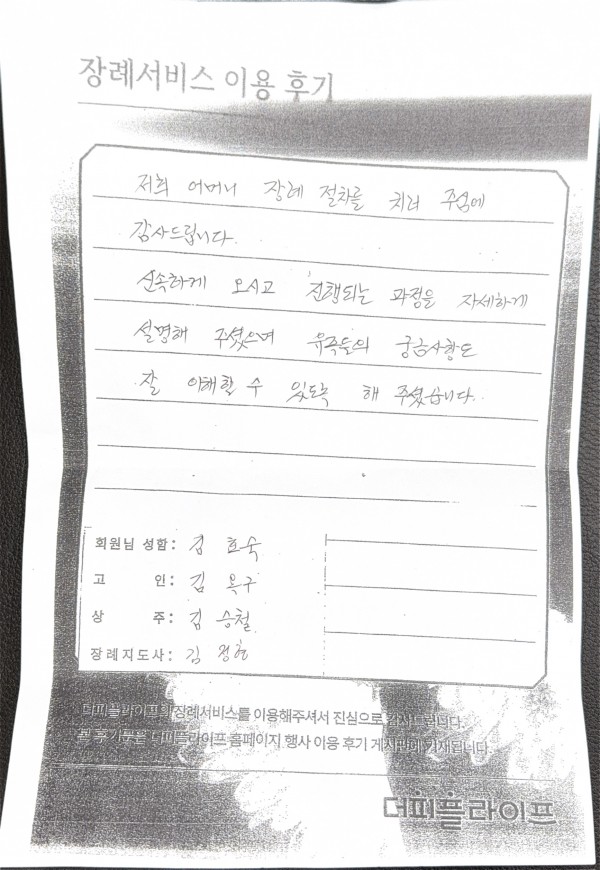 장례서비스 이용 후기
저희 어머니 장례 절차를 치러 주심에
감사드립니다.
신속하게 오시고 진행되는 과정을 자세하게
설명해 주셨으며 유족들의 궁금사항도
잘 이해할 수 있도록 해 주셨습니다.
회원님 성함 : 김 효숙
고 인 : 김 옥구
상 주 : 김 승철
장례지도사 : 김 정현
더피플라이프의 장례서비스를 이용해주셔서 진실으로 감사드립니다.
본 후기문은 더피플라이프 홈페이지 행사 이용 후기 게시판에 기재됩니다.
더피플라이프